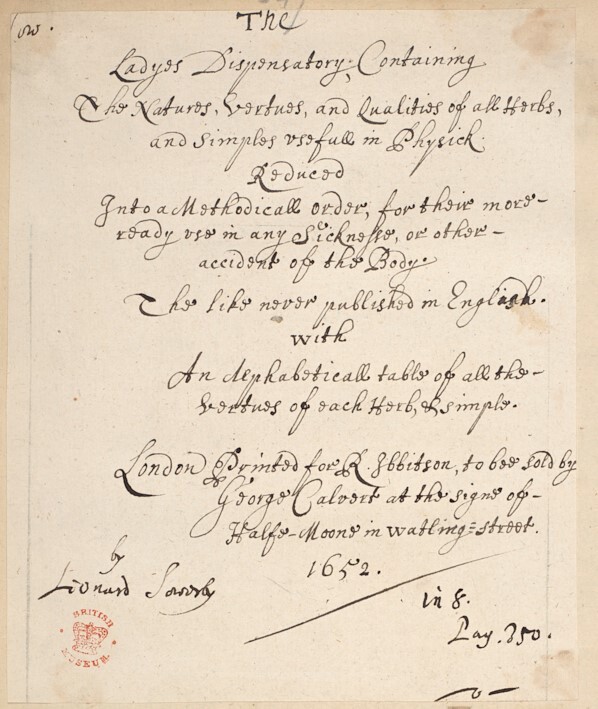 The
Ladyes Dispensatory: Containing
The Natures, Vertues, and Qualities of all Herbs,
and Simples vsefull in Physick:
Reduced
Into a Methodicall order, for their more-
ready vse in any Sicknesse, or other-
accident of the Body.
The like never published in English.
with
An Alphabeticall table of all the-
Vertues of each Herb, & simple.
London Printed for R. Ibbitson, to bee sold by
George Calvert at the signe of-
Halfe-Moone in Watling=street.
1652.
by
Leonard Sowerby
in 8.
Pag. 350.
BRITISH
MUSEUM